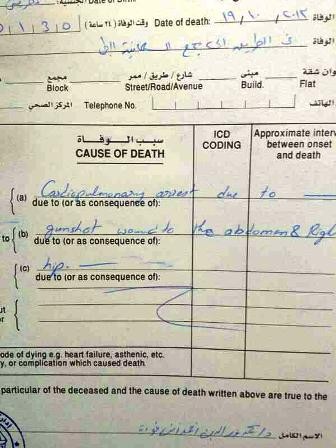 Date of Birth
٠١٣٠ وقت الوفاة (٢٤ ساعة) Date of death: ١٩ ١٠ ٢٠١٢ الوفاة
في الطريق
مجمع شارع / طريق / ممر مبنى شقة
Block Street/Road/Avenue Build. Flat
المركز الصحي Telephone No. الهاتف
سبب الوفاة ICD Approximate interv
CAUSE OF DEATH CODING between onset
and death
(a) Cardiopulmonary arrest due to
due to (or as consequence of):
to (b) gunshot wound to the abdomen & Right
due to (or as consequence of):
(c) hip.
due to (or as consequence of):
ut
or
ode of dying e.g. heart failure, asthenic, etc.
y, or complication which caused death.
particular of the deceased and the cause of death written above are true to the
الاسم الكامل